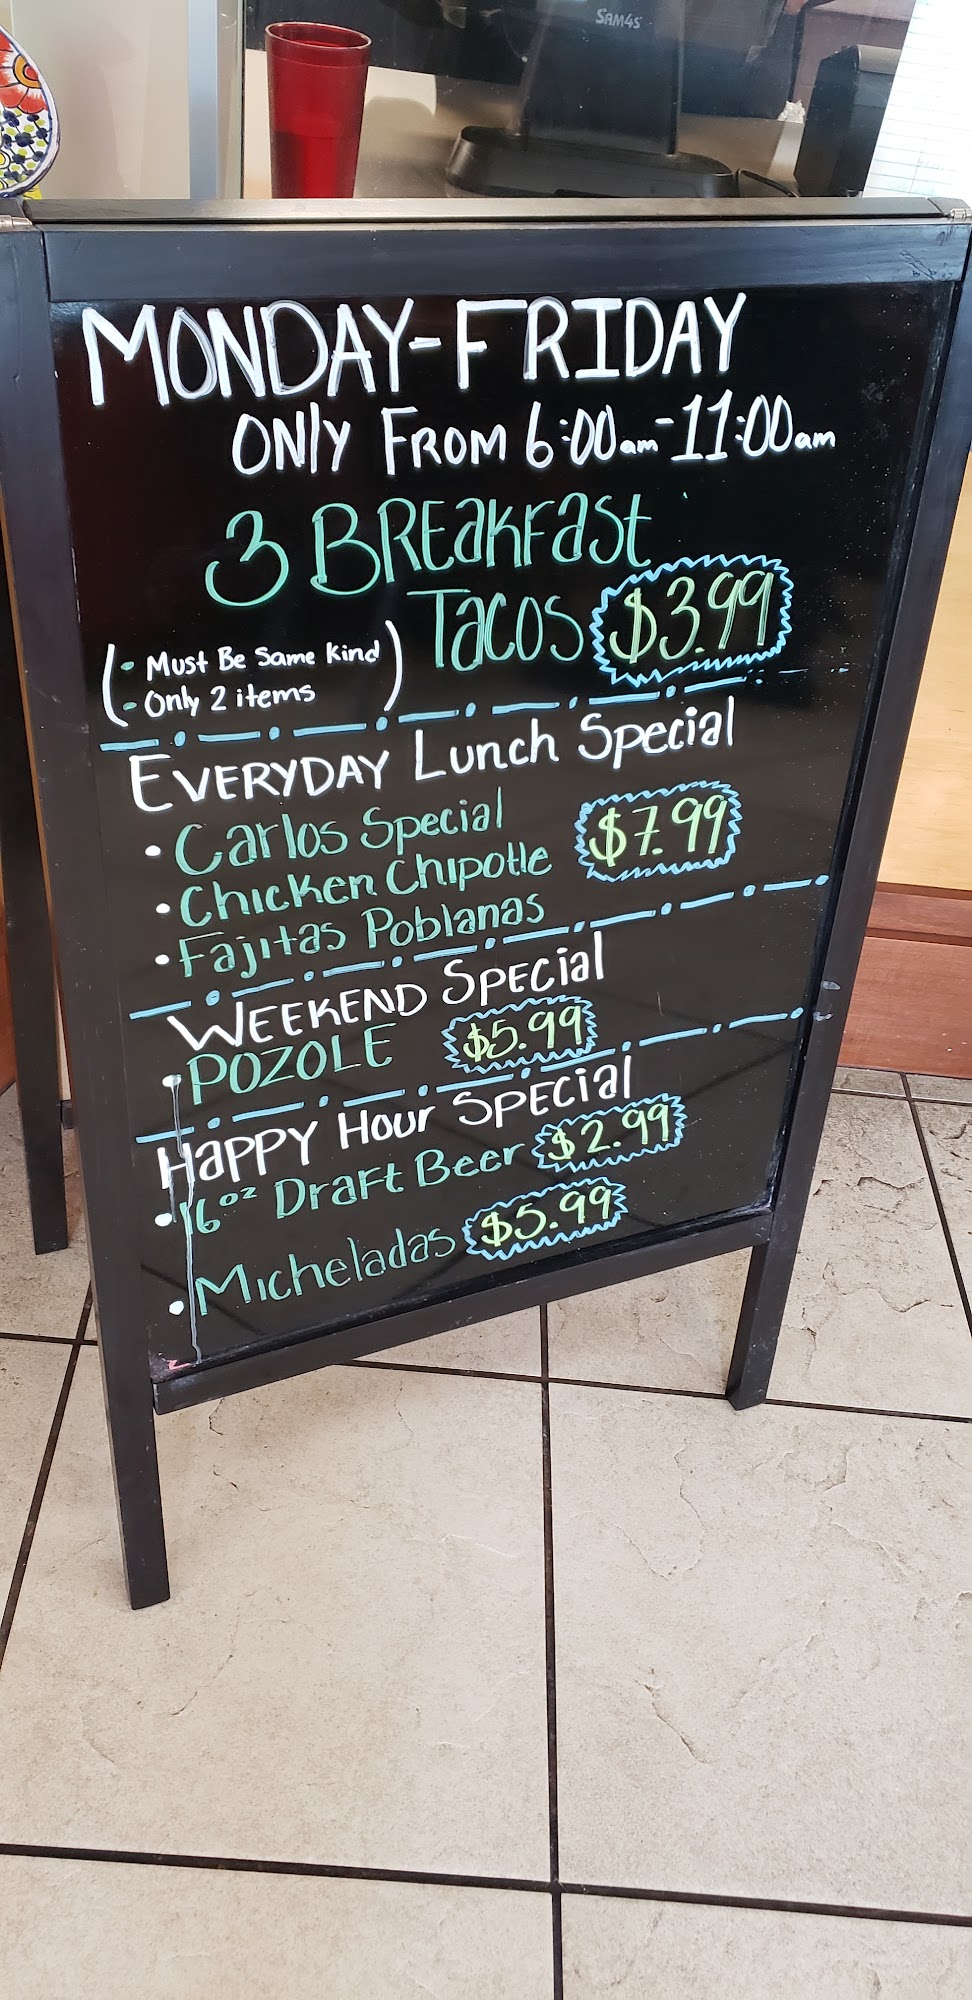 SAM4S
MONDAY-FRIDAY
ONLY FROM 6:00am-11:00am
3 BREakFast
Tacos $3.99
(- Must Be Same Kind
- Only 2 items)
EVERYDAY Lunch Special
• Carlos Special
$7.99
• Chicken Chipotle
• Fajitas Poblanas
WEEKEND SPECial
• POZOLE $5.99
HaPPY Hour SPECial
• 16oz Draft Beer $2.99
• Micheladas $5.99